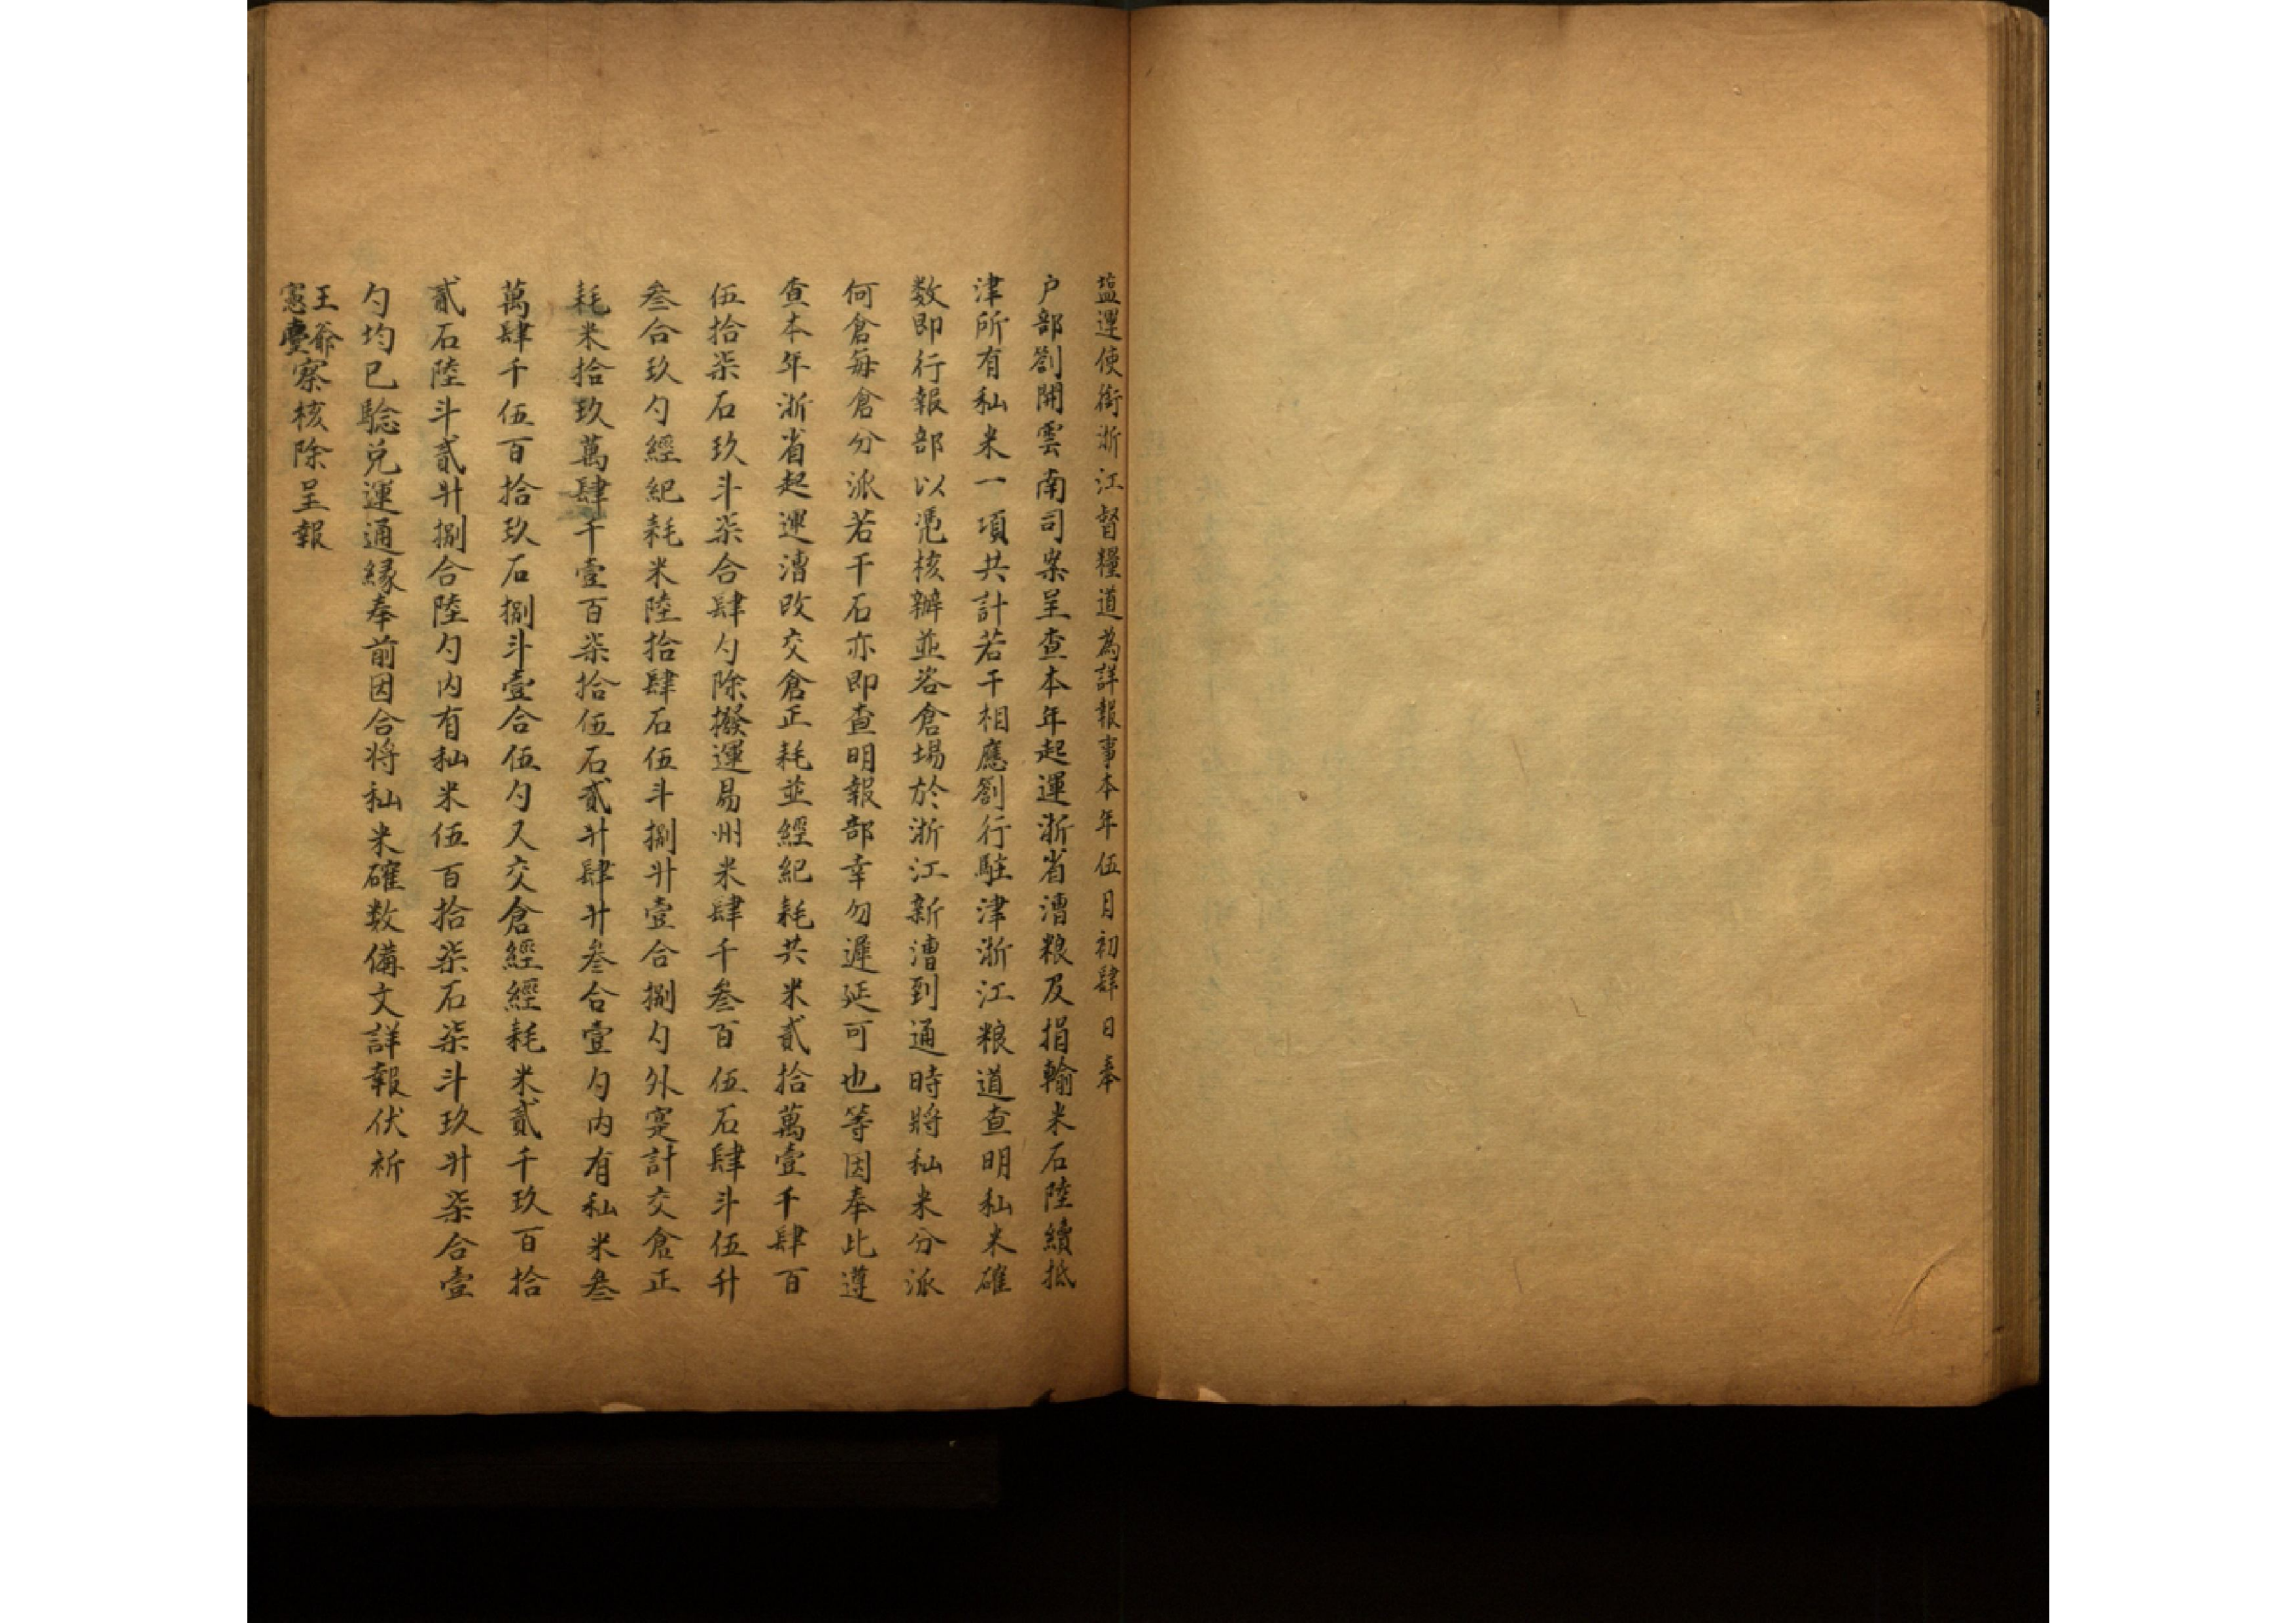 塩運使銜浙江督糧道為詳報事本年伍月初肆日奉
户部劄開雲南司案呈查本年起運浙省漕粮及捐輸米石陸續抵
津所有秈米一項共計若干相應劄行駐津浙江粮道查明秈米確
数即行報部以凴核辦並咨倉場於浙江新漕到通時將秈米分派
何倉每倉分派若干石亦即查明報部幸勿遲延可也等因奉此遵
查本年浙省起運漕改交倉正耗並經紀耗共米貳拾萬壹千肆百
伍拾柒石玖斗柒合肆勺除撥運易州米肆千叁百伍石肆斗伍升
叁合玖勺經紀耗米陸拾肆石伍斗捌升壹合捌勺外寔計交倉正
耗米拾玖萬肆千壹百柒拾伍石貳升肆升叁合壹勺内有秈米叁
萬肆千伍百拾玖石捌斗壹合伍勺又交倉經經耗米貳千玖百拾
貳石陸斗貳升捌合陸勺内有秈米伍百拾柒石柒斗玖升柒合壹
勺均已驗兑運通緣奉前因合将秈米確数備文詳報伏祈
王爺
憲臺察核除呈報